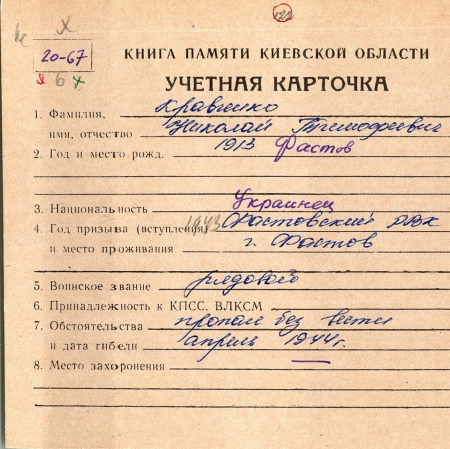 122
20-67
я 6 х
КНИГА ПАМЯТИ КИЕВСКОЙ ОБЛАСТИ
УЧЕТНАЯ КАРТОЧКА
1. Фамилия, Кравченко
имя, отчество Николай Тимофеевич
2. Год и место рожд. 1913 Фастов
3. Национальность Украинец
4. Год призыва (вступления) 1943 Фастовский РВК
и место проживания г. Фастов
5. Воинское звание рядовой
6. Принадлежность к КПСС. ВЛКСМ
7. Обстоятельства пропал без вести
и дата гибели апрель 1944г.
8. Место захоронения